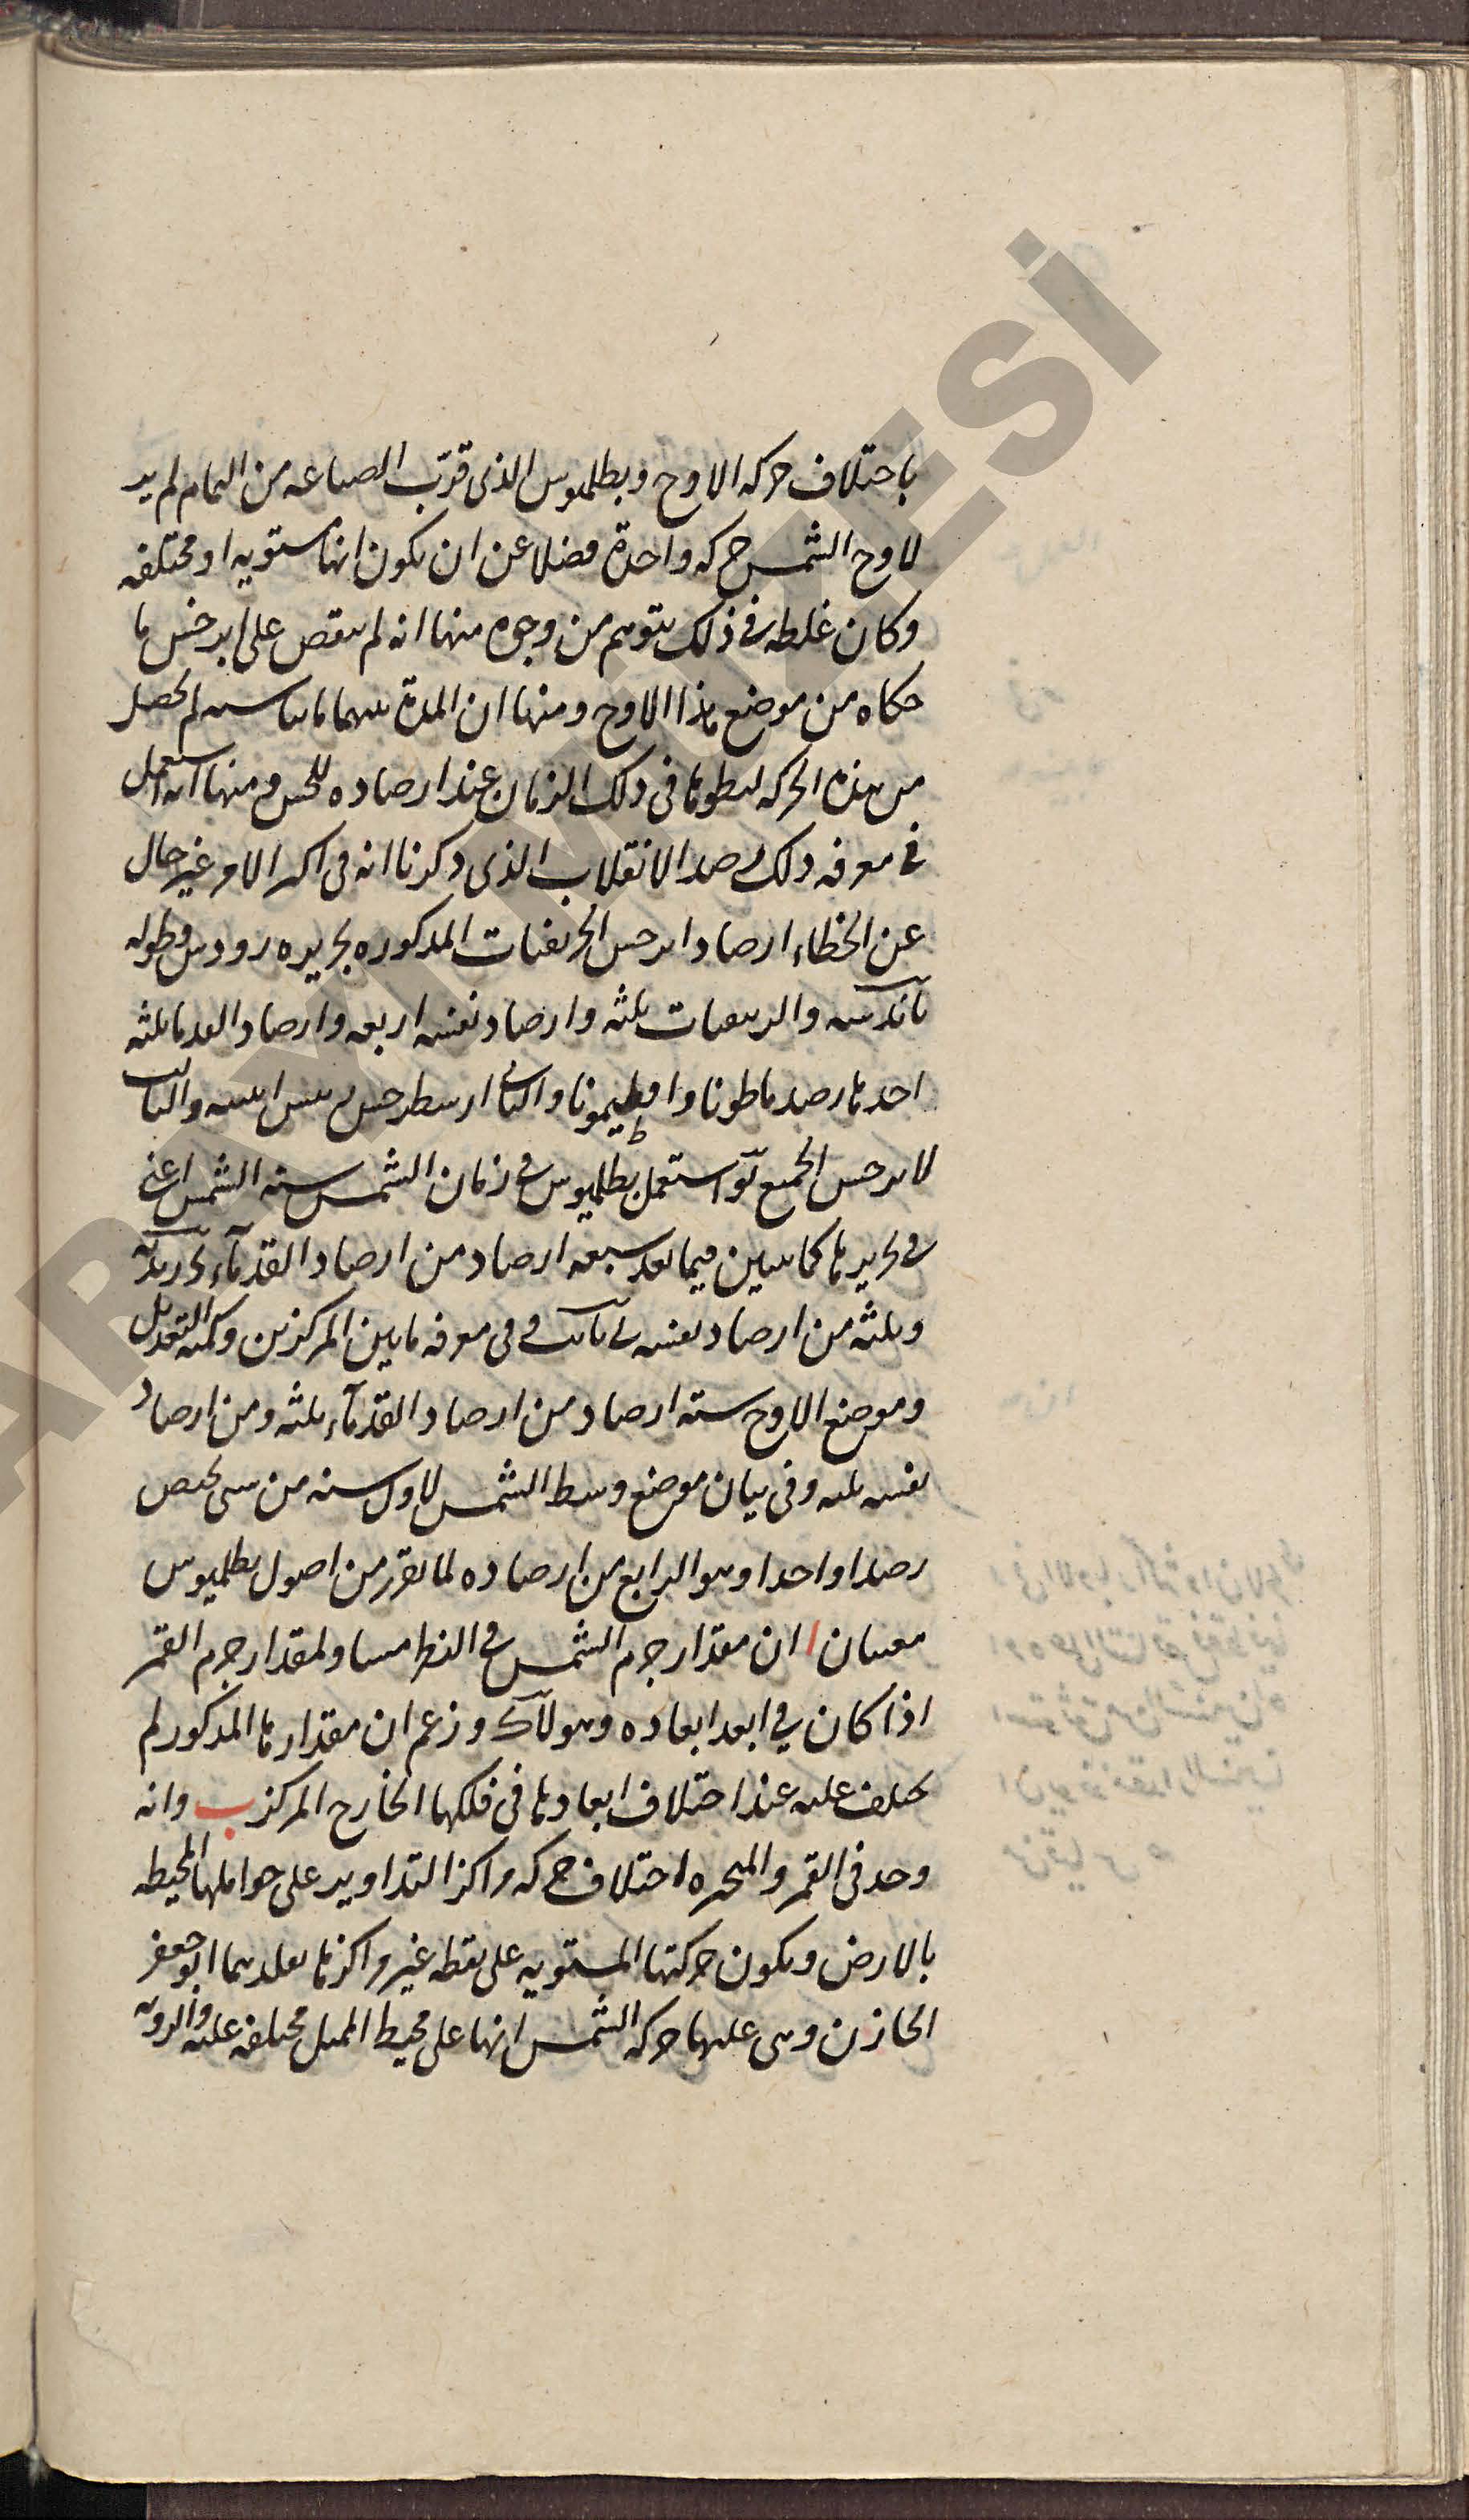 باختلاف حركه الاوج وبطلميوس الذى قرّب الصناعه من التمام لم ير
لاوج الشمس حركه واحدة فضلا عن ان يكون انها مستويه او مختلفه
وكان غلطه فى ذلك يتوهم من وجوه منها انه لم ينقص على ابرخس ما
حكاه من موضع هذا الاوج ومنها ان المدة بينهما لم يحصل
من هذه الحركه لبطوها فى ذلك الزمان عند ارصاده للحس ومنها انه استعمل
فى معرفه ذلك رصد الانقلاب الذى ذكرنا انه فى اكثر الامر غير خال
عن الخطاء ارصاد ابرخس الخريفيات المذكوره بجزيره رودس وطوله
والربيعيات ثلثه وارصاد نفسه اربعه وارصاد القدما ثلثه
احدها رصد ماطونا واقطيمونا والثانى ارسطرخس والثالث
لابرخس الجميع استعمل بطلميوس فى زمان الشمس سنه الشمس اعنى
فى تحريرها كما يتبين فيما بعد سبعه ارصاد من ارصاد القدمآء
وثلثه من ارصاد نفسه وفى معرفه ما بين المركزين وكميه التعديل
وموضع الاوج سته ارصاد من ارصاد القدمآء ثلثه ومن ارصاد
نفسه ثلثه وفى بيان موضع وسط الشمس لاول سنه من سنى بختنصر
رصدا واحدا وهو الرابع من ارصاده لما تقرر من اصول بطلميوس
معنيان ا ان مقدار جرم الشمس فى النظر مساو لمقدار جرم القمر
اذا كان فى ابعد ابعاده وهو وزعم ان مقدارها المذكور لم
يختلف عليه عند اختلاف ابعادها فى فلكها الخارج المركز ب وانه
وجد فى القمر والمتحيره اختلاف حركه مراكز التداوير على حواملها المحيطه
بالارض ويكون حركتها المستويه على نقطه غير مراكزها ابو جعفر
الخازن وبنى عليها حركه الشمس انها على محيط المميل مختلفه